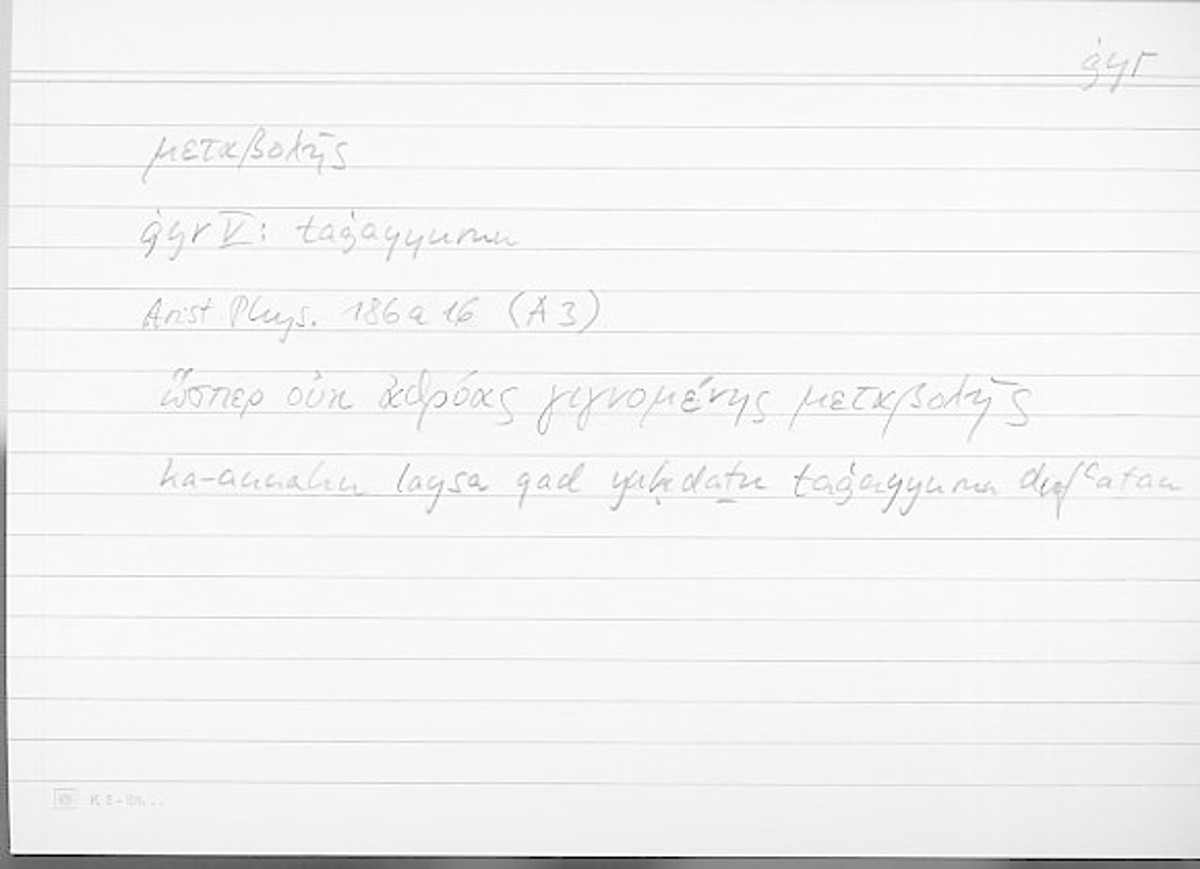 ġyr
μεταβολῆς
ġyr V: taġayyurun
Arist Phys. 186a 16 (A 3)
ὥσπερ οὐκ ἀθρόας γιγνομένης μεταβολῆς
ka-annahu laysa qad yaḥdaṯu taġayyurun dufʿatan